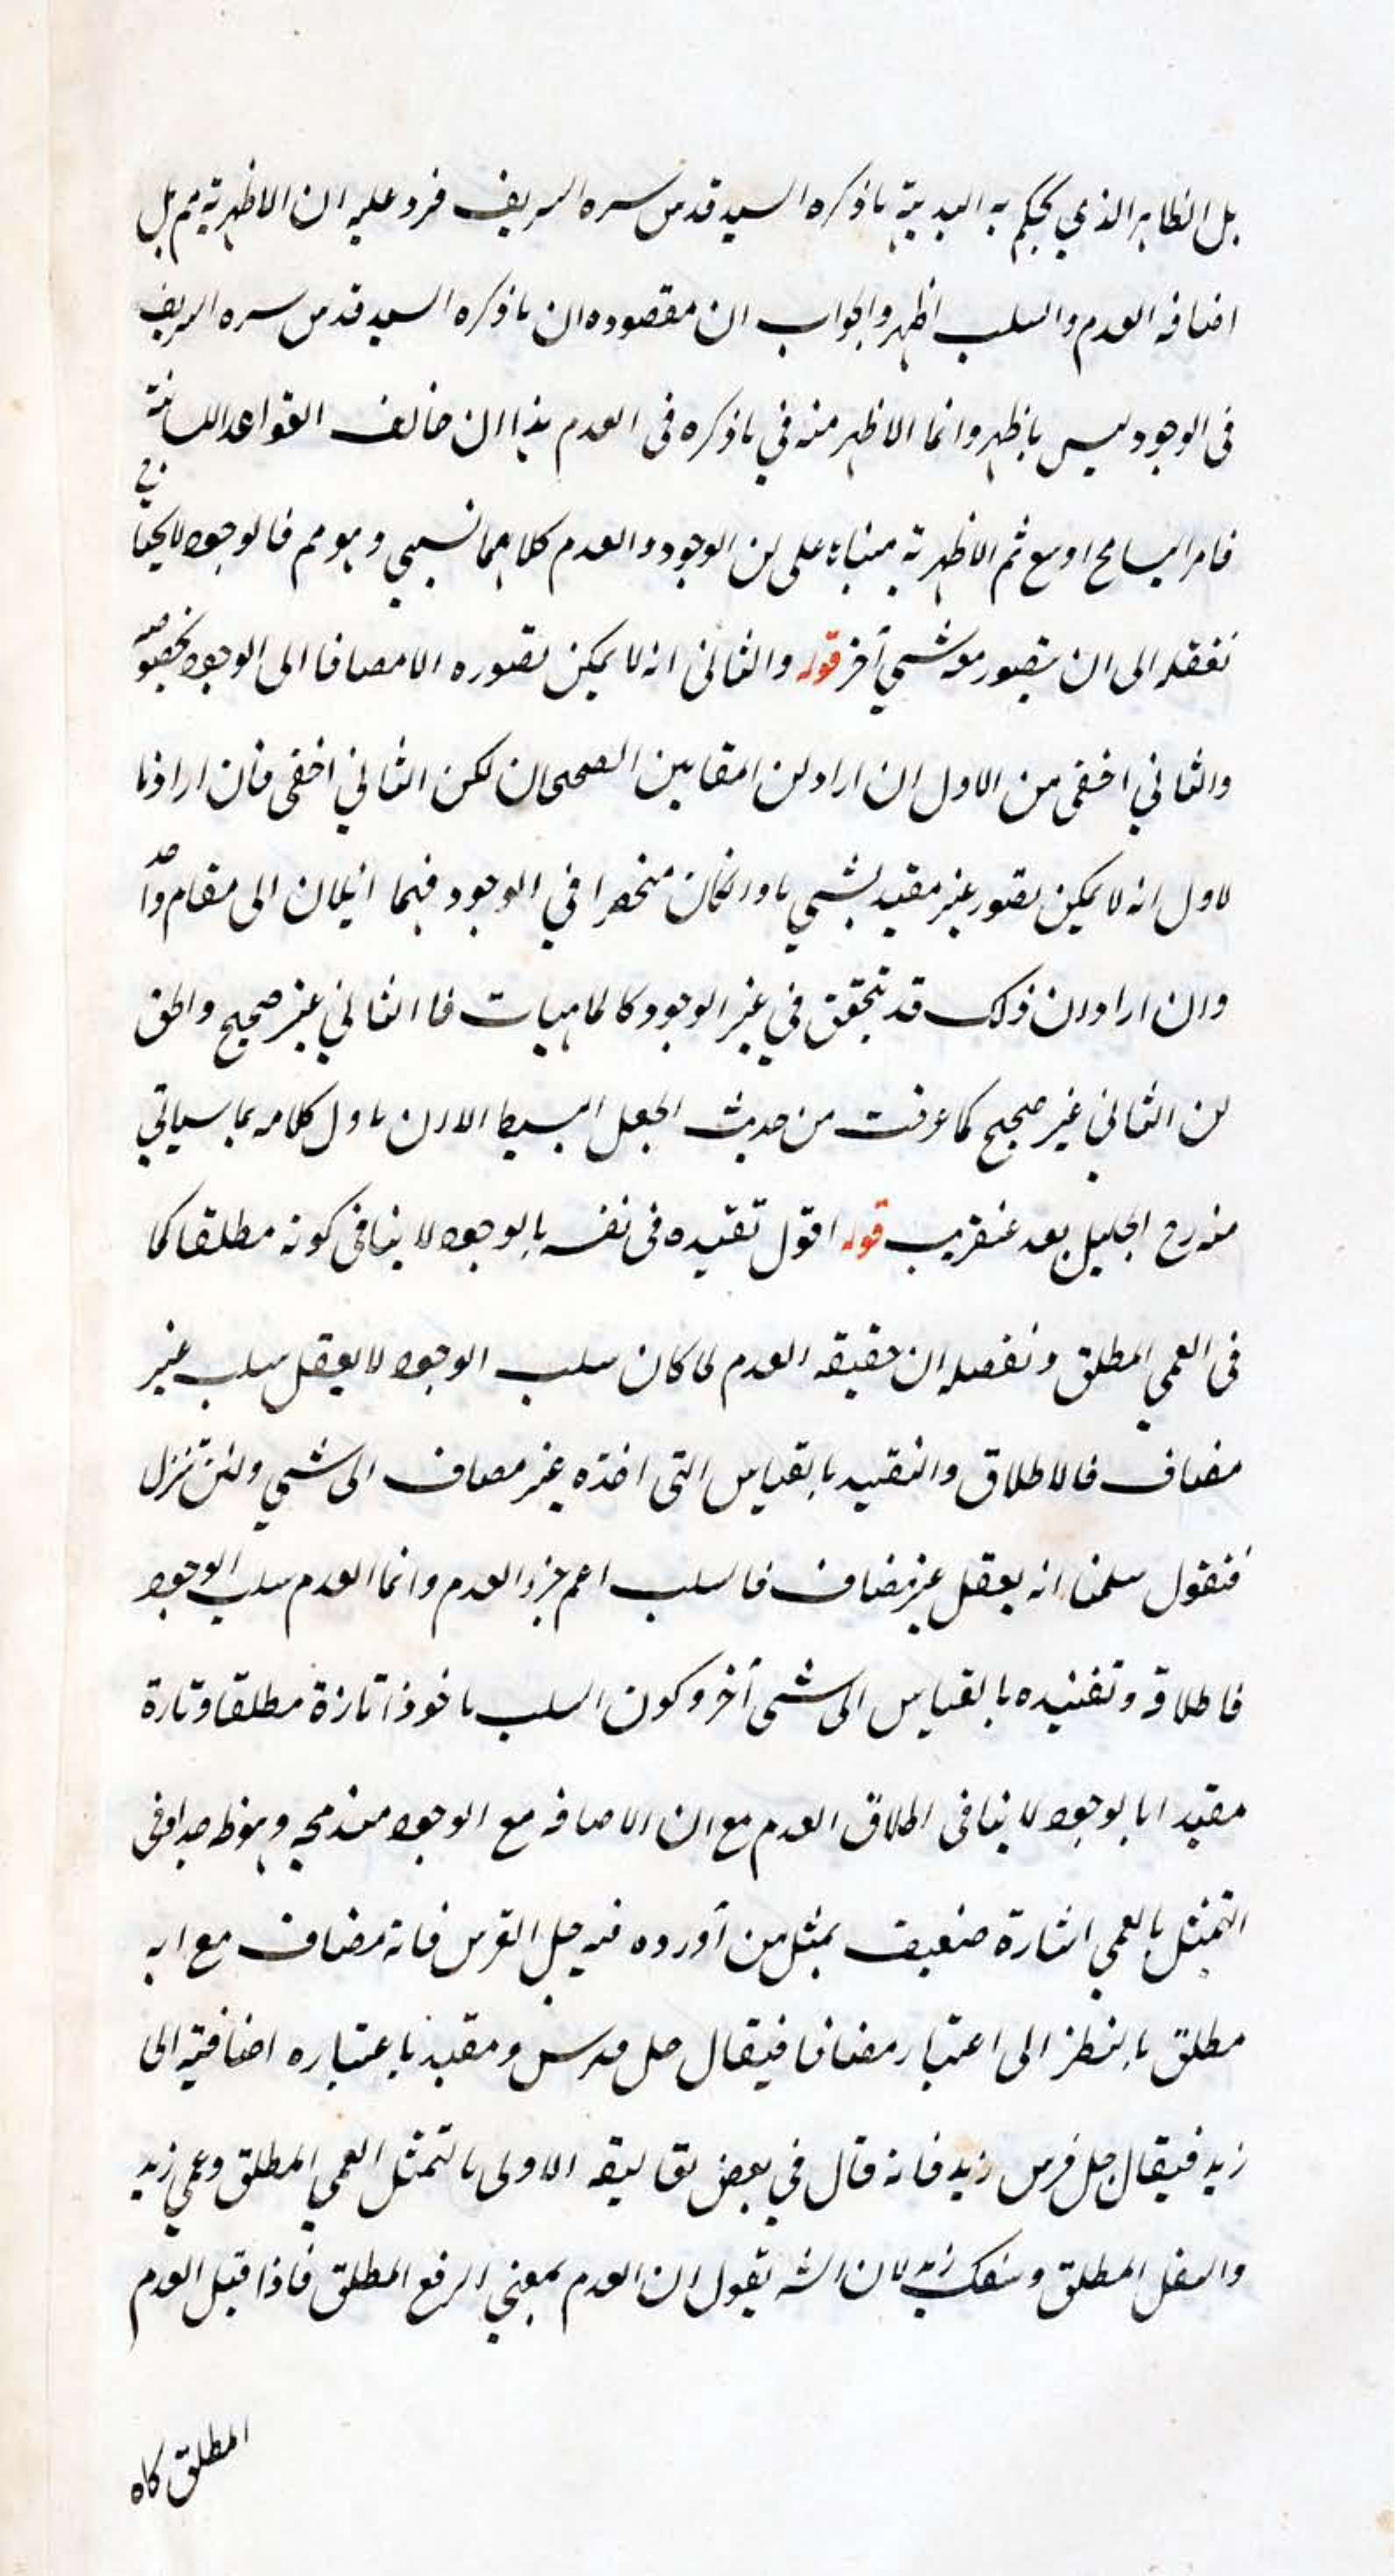 بل الظاهر الذي يحكم به البديهة ما ذكره السيد قدس سره الشريف فرد عليه ان الاظهرية مم بل
اضافه العدم والسلب اظهر والجواب ان مقصوده ان ما ذكره السيد قدس سره الشريف
فى الوجود ليس باظهر وانما الاظهر منه في ما ذكره فى العدم هذا ان خالف القواعد اللسانية
فامر التسامح اوسع ثم الاظهرية مبناه على ان الوجود والعدم كلاهما نسبي وهو مم فالوجود لا يحتاج في
تعقله الى ان يتصور معه شي آخر قوله والثانى انه لا يمكن تصوره الا مضافا الى الوجود بخصوصه
والثاني اخفى من الاول ان اراد ان المقامين الصحيحان لكن الثاني اخفى فان اراد با
لاول انه لا يمكن تصور غير مقيد بشي ما وان كان منحصرا في الوجود فهما آئلان الى مقام واحد
وان اراد ان ذلك قد يتحقق في غير الوجود كالماهيات فا الثاني غير صحيح والحق
ان الثاني غير صحيح كما عرفت من حديث الجعل البسيط الا ان ياول كلامه بما سياتي
منه رح الجليل بعد عنقريب قوله اقول تقيده فى نفسه بالوجود لا ينافى كونه مطلقا كما
فى العمي المطلق وتفصيله ان حقيقه العدم لما كان سلب الوجود لا يعقل سلب غير
مضاف فالاطلاق والتقييد بالقياس التى اخذه غير مضاف الى شي ولئن تنزل
فنقول سلمنا انه يعقل غير مضاف فالسلب اعم جزء العدم وانما العدم سلب الوجود
فاطلاقه وتقييده بالقياس الى شى آخر وكون السلب ماخوذا تارة مطلقا وتارة
مقيدا بالوجود لا ينافى اطلاق العدم مع ان الاضافه مع الوجود مندمجه وهو ظ جدا وفى
التمثيل بالعمي اشارة ضعيف بمثل من آورده فيه جل الفرس فانه مضاف مع انه
مطلق بالنظر الى اعتبار مضافا فيقال جل فرس ومقيد باعتباره اضافيته الى
زيد فيقال جل فرس زيد فانه قال في بعض تعاليقه الاولى بالتمثل العمي المطلق وعمي زيد
والعقل المطلق وتعقل زيد لان الشه يقول ان العدم بمعني الرفع المطلق فاذا قيل العدم
المطلق كاه